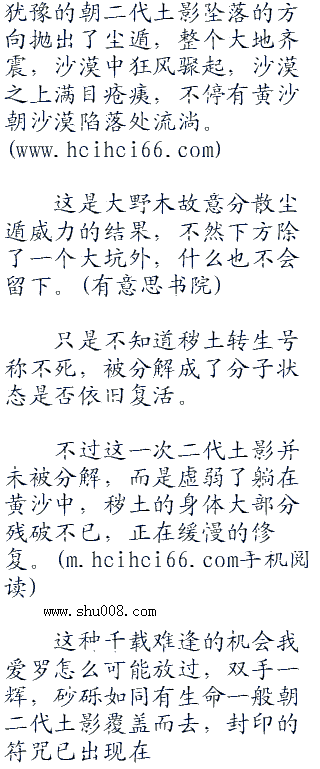 犹豫的朝二代土影坠落的方
向抛出了尘遁，整个大地齐
震，沙漠中狂风骤起，沙漠
之上满目疮痍，不停有黄沙
朝沙漠陷落处流淌。
(www.hcihci66.com)
这是大野木故意分散尘
遁威力的结果，不然下方除
了一个大坑外，什么也不会
留下。(有意思书院)
只是不知道秽土转生号
称不死，被分解成了分子状
态是否依旧复活。
不过这一次二代土影并
未被分解，而是虚弱了躺在
黄沙中，秽土的身体大部分
残破不已，正在缓慢的修
复。(m.hcihci66.com手机阅
读)
www.shu008.com
这种千载难逢的机会我
爱罗怎么可能放过，双手一
辉，砂砾如同有生命一般朝
二代土影覆盖而去，封印的
符咒已出现在